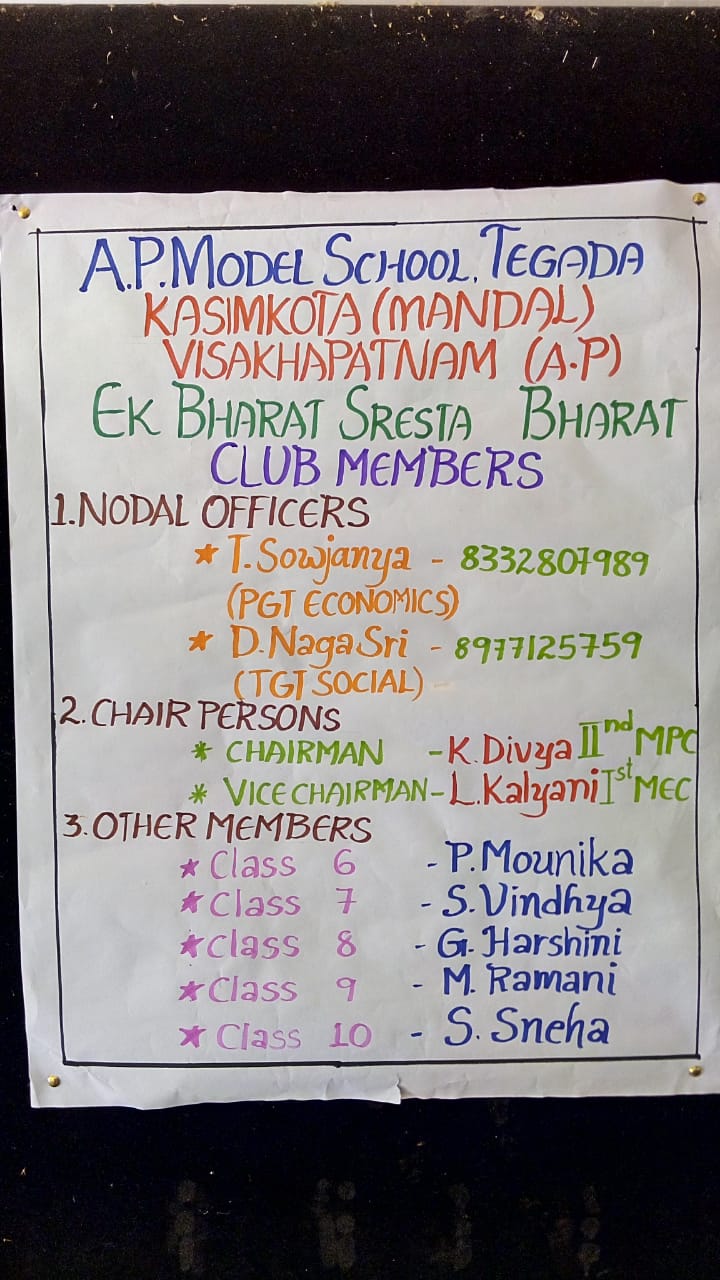 A.P.MODEL SCHOOL, TEGADA
KASIMKOTA (MANDAL)
VISAKHAPATNAM (A.P)
EK BHARAT SRESTA BHARAT
CLUB MEMBERS
1.NODAL OFFICERS
★ T.Sowjanya - 8332807989
(PGT ECONOMICS)
★ D.Naga Sri - 8977125759
(TGT SOCIAL)
2.CHAIR PERSONS
* CHAIRMAN - K.Divya IInd MPC
* VICE CHAIRMAN - L.Kalyani Ist MEC
3.OTHER MEMBERS
★ Class 6 - P.Mounika
★ Class 7 - S.Vindhya
★ Class 8 - G.Harshini
★ Class 9 - M. Ramani
★ Class 10 - S. Sneha